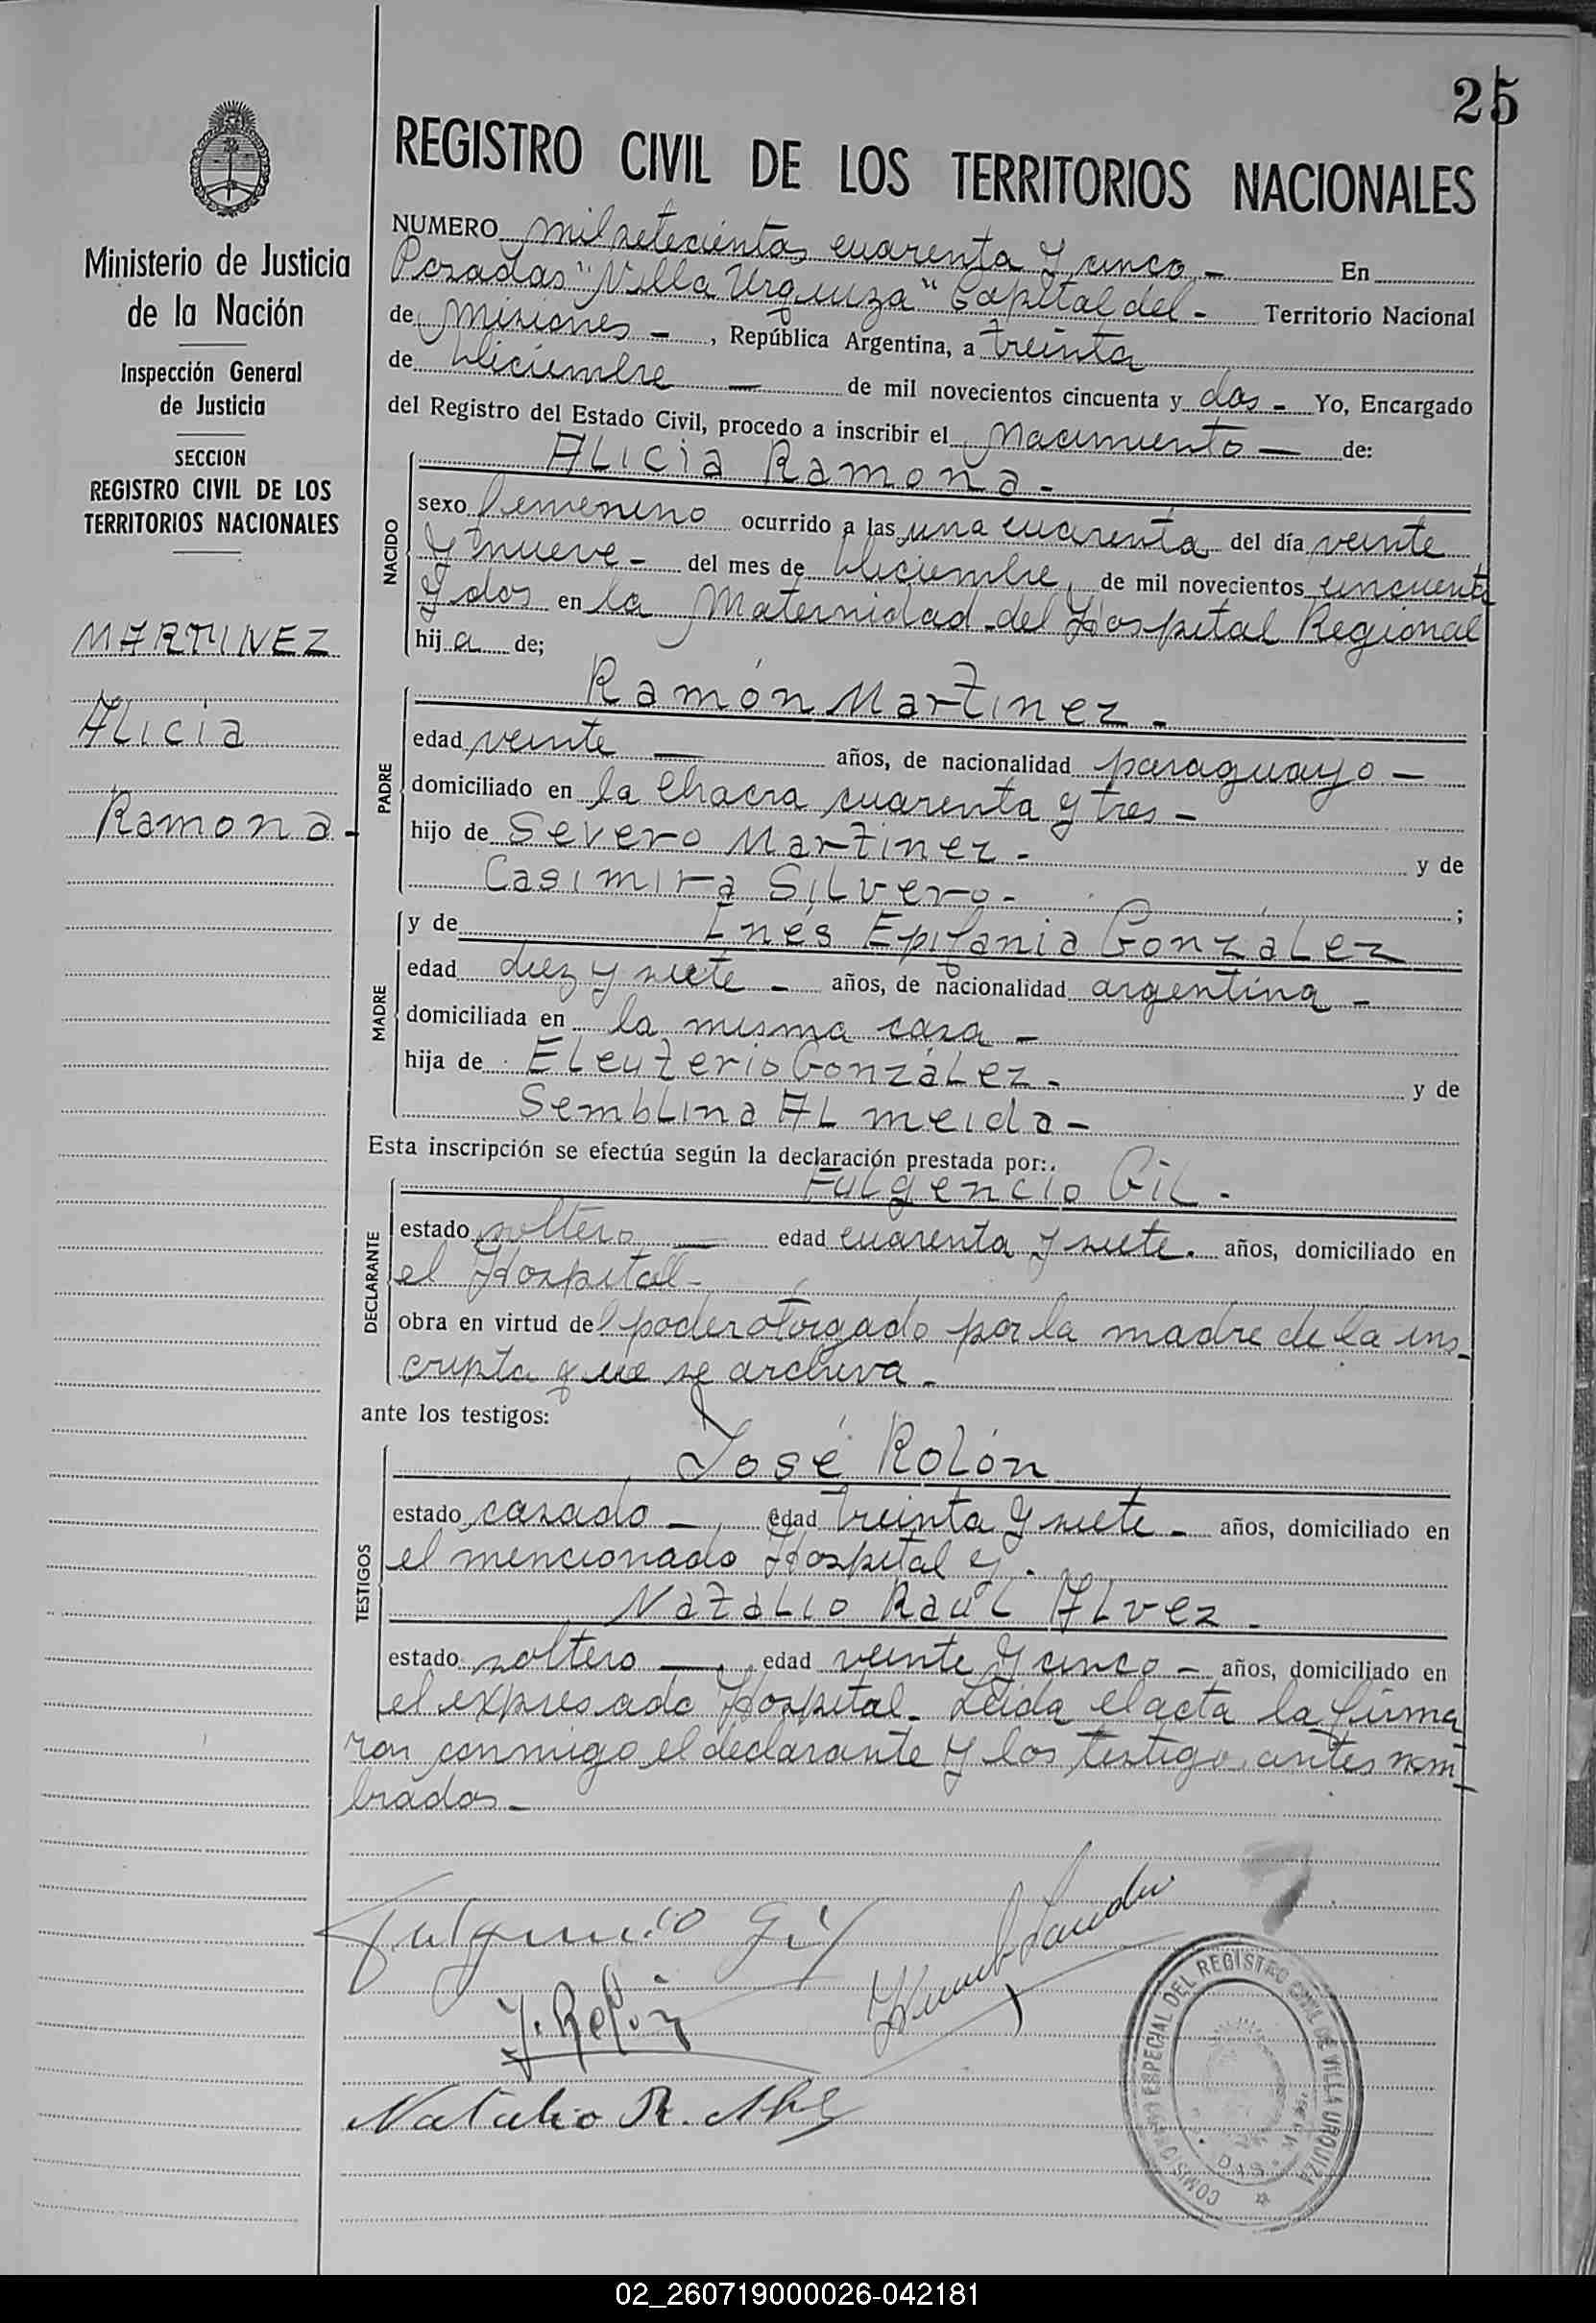 25
REGISTRO CIVIL DE LOS TERRITORIOS NACIONALES
Ministerio de Justicia
de la Nación
Inspección General
de Justicia
SECCION
REGISTRO CIVIL DE LOS
TERRITORIOS NACIONALES
MARTINEZ
Alicia
Ramona-
NUMERO mil setecientos cuarenta y cinco - En
Posadas "Villa Urquiza" Capital del - Territorio Nacional
de Misiones -, República Argentina, a treinta
de Diciembre - de mil novecientos cincuenta y dos - Yo, Encargado
del Registro del Estado Civil, procedo a inscribir el Nacimiento - de:
NACIDO
Alicia Ramona-
sexo femenino ocurrido a las una cuarenta del día veinte
y nueve - del mes de Diciembre, de mil novecientos cincuenta
y dos en la Maternidad del Hospital Regional
hija de;
PADRE
Ramón Martinez-
edad veinte - años, de nacionalidad paraguayo -
domiciliado en la Chacra cuarenta y tres -
hijo de Severo Martinez - y de
Casimira Silvero - ;
MADRE
y de Inés Epifania González
edad diez y siete - años, de nacionalidad argentina -
domiciliada en la misma casa -
hija de Eleuterio González - y de
Semblina Almeida -
Esta inscripción se efectúa según la declaración prestada por:
DECLARANTE
Fulgencio Gil -
estado soltero - edad cuarenta y siete - años, domiciliado en
el Hospital -
obra en virtud del poder otorgado por la madre de la ins-
cripta que se archiva -
ante los testigos:
TESTIGOS
José Rolón
estado casado - edad treinta y siete - años, domiciliado en
el mencionado Hospital y
Natalio Raúl Alvez -
estado soltero -, edad veinte y cinco - años, domiciliado en
el expresado Hospital - Leida el acta la firma
ron conmigo el declarante y los testigos antes nom-
brados -
Fulgencio Gil
J. Rolón
Natalio R. Alvez
COMISIONADO ESPECIAL DEL REGISTRO CIVIL DE VILLA URQUIZA
02_260719000026-042181